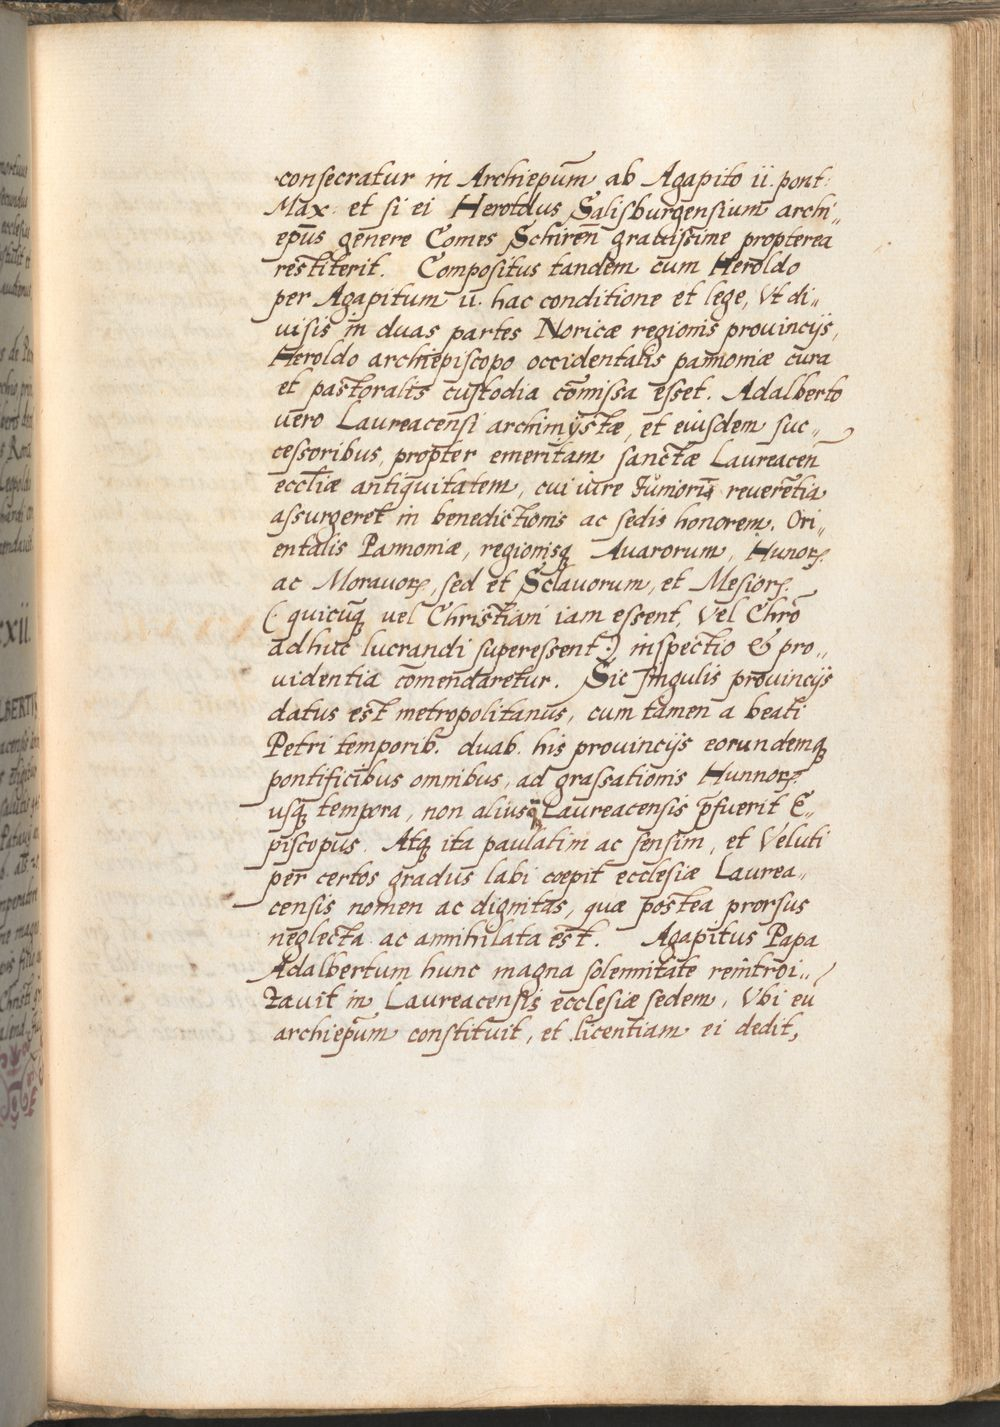 consecratur in Archiepũm ab Agapito ii. pont:
Max. et si ei Heroldus Salisburgensium archi„
epũs genere Comes Schireñ grauissime propterea
restiterit. Compositus tandem cum Heroldo
per Agapitum ii. hac conditione et lege, Vt di„
uisis in duas partes Noricæ regionis prouincijs,
Heroldo archiepiscopo occidentalis pannoniæ cura
et pastoralis custodia cõmissa esset. Adalberto
uero Laureacensi archimystæ, et eiusdem suc„
cessoribus, propter emeritam sanctæ Laureaceñ
eccłiæ antiquitatem, cui iure Iunioris reuerẽtia
assurgeret in benedictionis ac sedis honorem. Ori„
entalis Pannoniæ, regionisq; Auarorum, Hunoꝝ
ac Morauoꝝ, sed et Sclauorum, et Mesioꝝ.
(: quicũq; uel Christiani iam essent, Vel Chrõ
adhuc lucrandi superessent :) inspectio & pro„
uidentia cõmendaretur. Sic singulis prouincijs
datus est metropolitanus, cum tamen a beati
Petri temporib. duab. his prouincijs eorundemq;
pontificibus omnibus, ad grassationis Hunnoꝝ
usq; tempora, non alius q̃ Laureacensis p̃fuerit E„
piscopus. Atq; ita paulatim ac sensim, et Veluti
per certos gradus labi cœpit ecclesiæ Laurea„
censis nomen ac dignitas, quæ postea prorsus
neglecta ac annihilata est. Agapitus Papa
Adalbertum hunc magna solennitate reintroi„
tauit in Laureacensis ecclesiæ sedem, Vbi eũ
archiepũm constituit, et licentiam ei dedit,